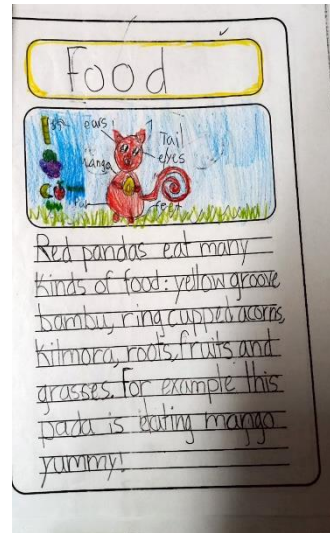 Food
ears
Tail
eyes
manga
feet
Red pandas eat many
kinds of food: yellow groove
bambu, ring cupped acorns,
kilmora, roots, fruits and
grasses. For example this
pada is eating mango
yummy!